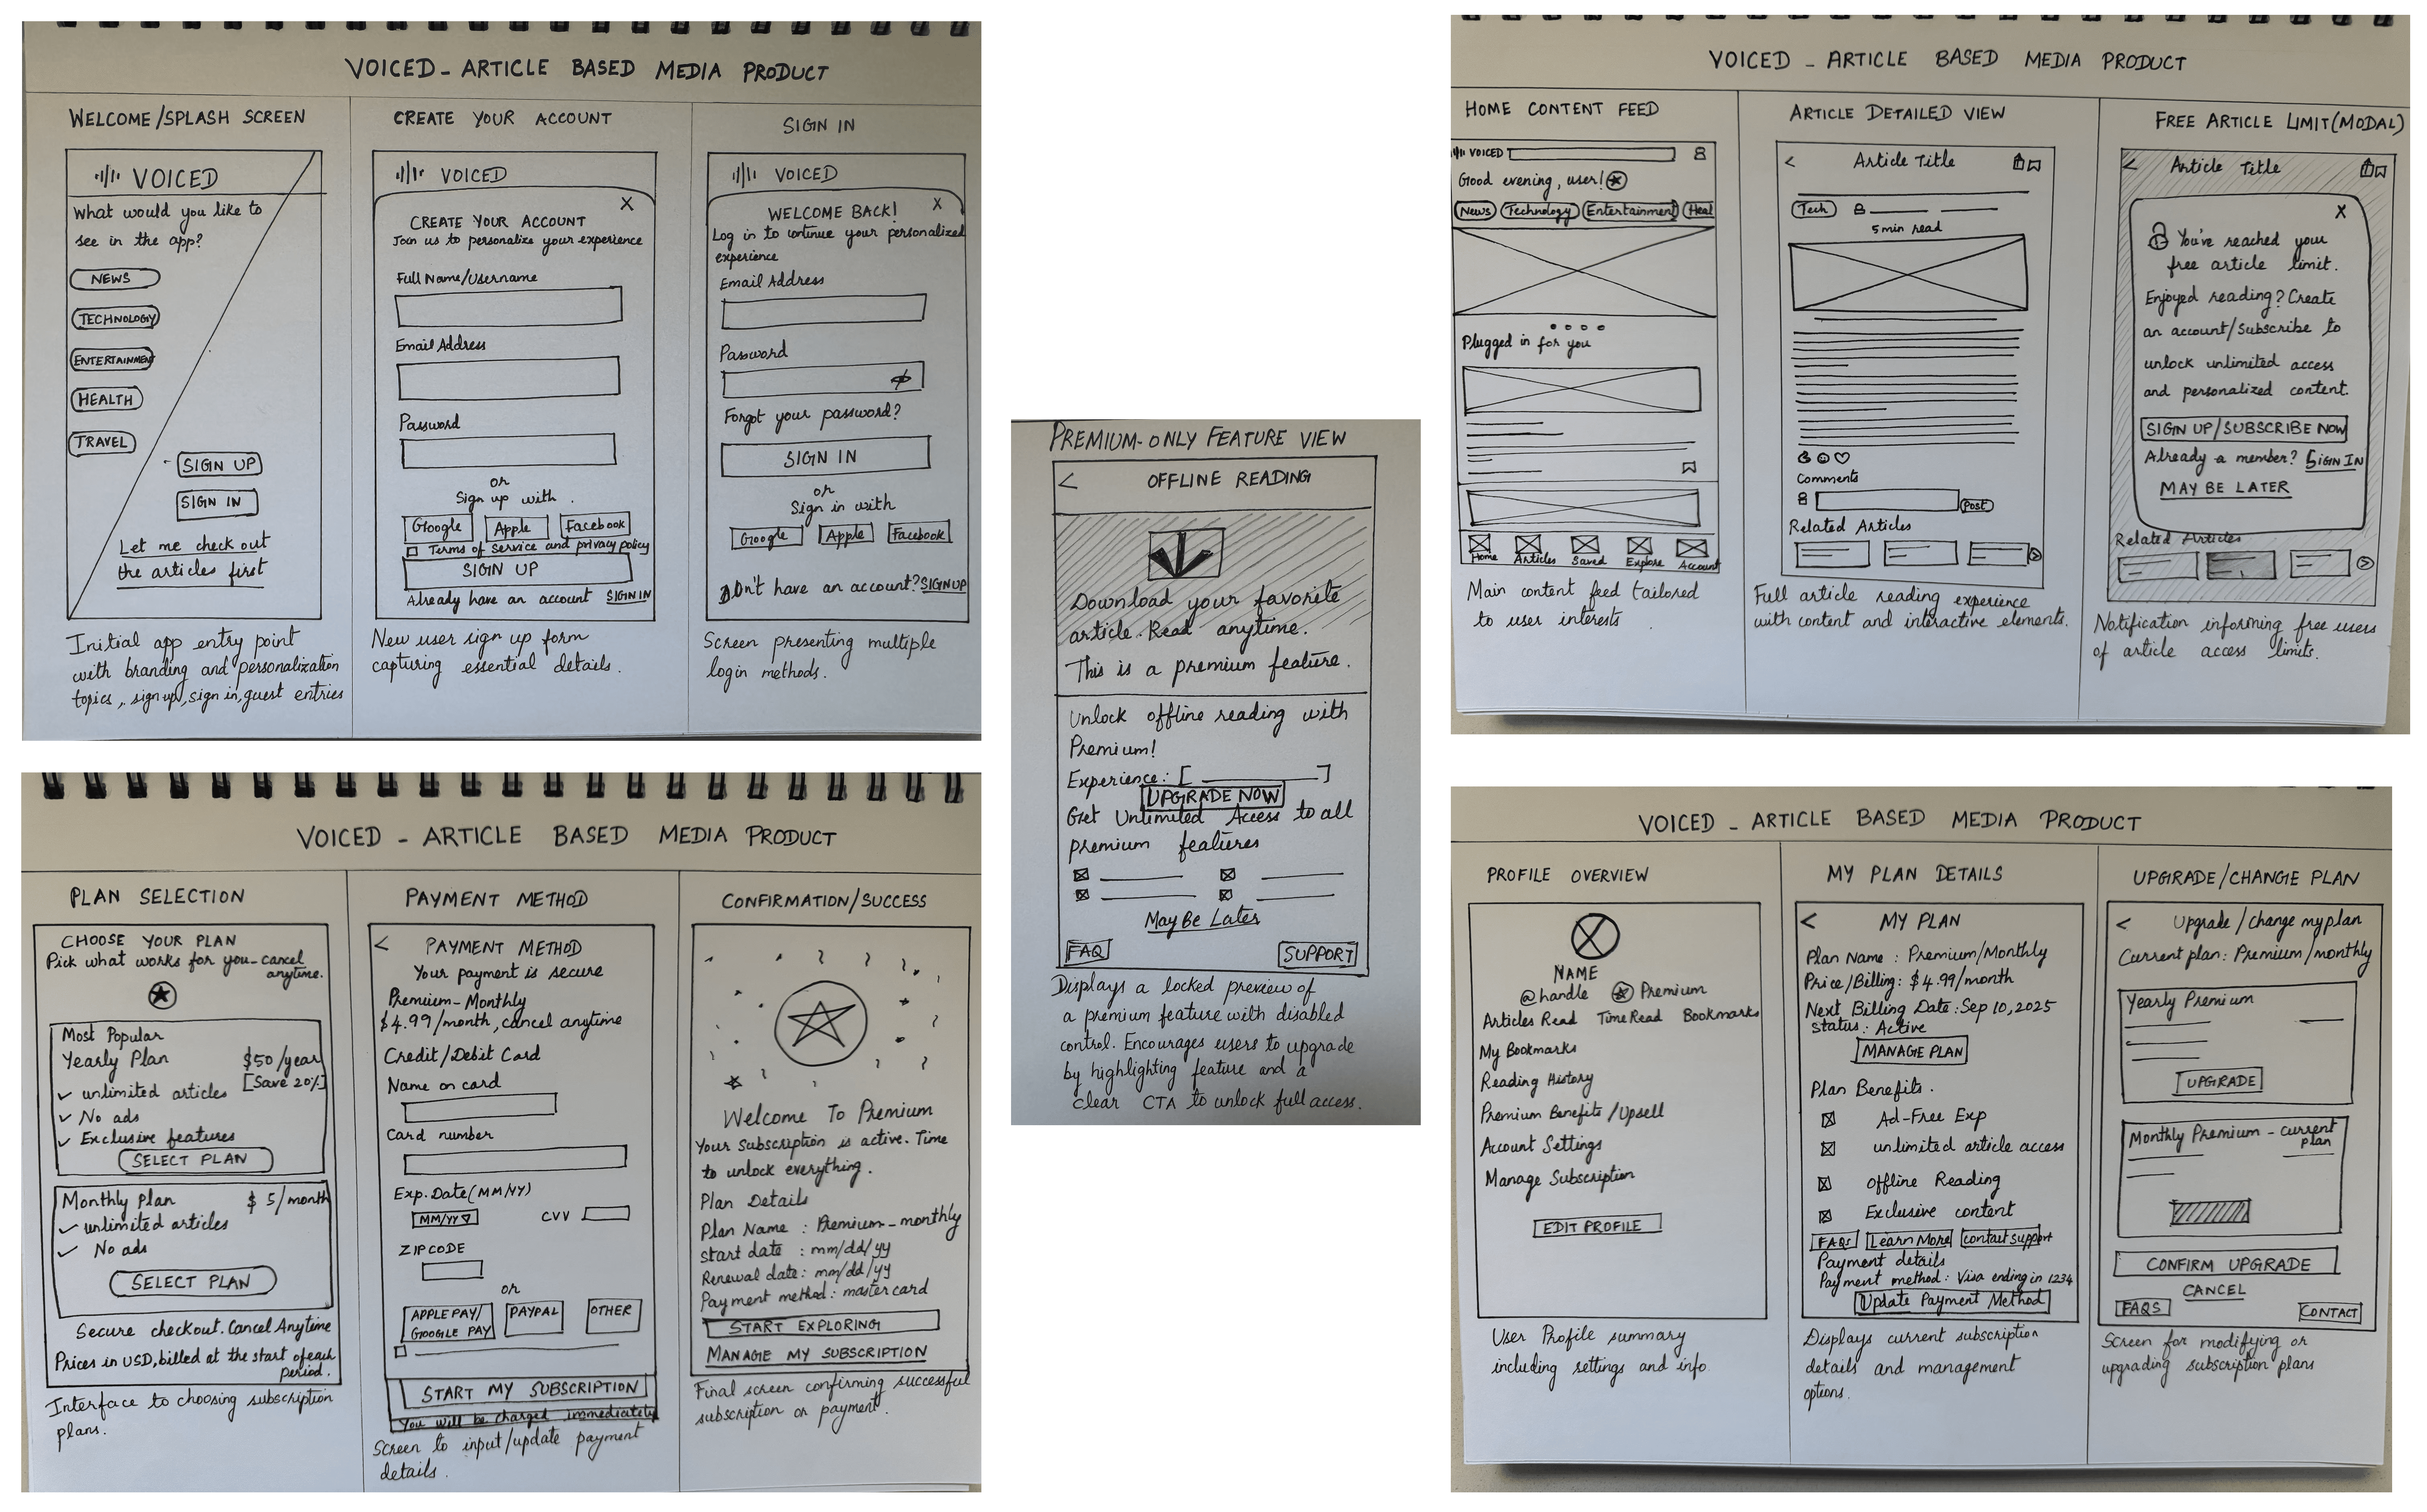 VOICED - ARTICLE BASED MEDIA PRODUCT
WELCOME/SPLASH SCREEN
VOICED
What would you like to
see in the app?
NEWS
TECHNOLOGY
ENTERTAINMENT
HEALTH
TRAVEL
SIGN UP
SIGN IN
Let me check out
the articles first
Initial app entry point
with branding and personalization
topics, sign up, sign in, guest entries
CREATE YOUR ACCOUNT
VOICED
X
CREATE YOUR ACCOUNT
Join us to personalize your experience
Full Name/Username
Email Address
Password
or
Sign up with
Google Apple Facebook
Terms of service and privacy policy
SIGN UP
Already have an account SIGN IN
New user sign up form
capturing essential details.
SIGN IN
VOICED
WELCOME BACK! X
Log in to continue your personalized
experience
Email Address
Password
Forgot your password?
SIGN IN
or
Sign in with
Google Apple Facebook
Don't have an account? SIGN UP
Screen presenting multiple
login methods.
VOICED - ARTICLE BASED MEDIA PRODUCT
HOME CONTENT FEED
VOICED
Good evening, user!
News Technology Entertainment Heal
Plugged in for you
Home Articles Saved Explore Account
Main content feed tailored
to user interests
ARTICLE DETAILED VIEW
< Article Title
Tech
5 min read
Comments
Post
Related Articles
Full article reading experience
with content and interactive elements.
FREE ARTICLE LIMIT (MODAL)
< Article Title
X
You've reached your
free article limit.
Enjoyed reading? Create
an account/Subscribe to
unlock unlimited access
and personalized content.
SIGN UP/SUBSCRIBE NOW
Already a member? SIGN IN
MAY BE LATER
Related Articles
Notification informing free users
of article access limits.
PREMIUM-ONLY FEATURE VIEW
< OFFLINE READING
Download your favorite
article. Read anytime.
This is a premium feature.
Unlock offline reading with
Premium!
Experience: [ ]
UPGRADE NOW
Get Unlimited Access to all
premium features
May Be Later
FAQ SUPPORT
Displays a locked preview of
a premium feature with disabled
control. Encourages users to upgrade
by highlighting feature and a
clear CTA to unlock full access.
VOICED - ARTICLE BASED MEDIA PRODUCT
PLAN SELECTION
CHOOSE YOUR PLAN
Pick what works for you - cancel
anytime.
Most Popular
Yearly Plan $50/year
[Save 20%]
✓ unlimited articles
✓ No ads
✓ Exclusive features
SELECT PLAN
Monthly Plan $ 5/month
✓ unlimited articles
✓ No ads
SELECT PLAN
Secure checkout. Cancel Anytime
Prices in USD, billed at the start of each
period.
Interface to choosing subscription
plans.
PAYMENT METHOD
< PAYMENT METHOD
Your payment is secure
Premium-Monthly
$4.99/month, cancel anytime
Credit/Debit Card
Name on card
Card number
Exp. Date (MM/YY)
MM/YY CVV
ZIPCODE
or
APPLE PAY/
GOOGLE PAY
PAYPAL
OTHER
START MY SUBSCRIPTION
You will be charged immediately
Screen to input/update payment
details.
CONFIRMATION/SUCCESS
Welcome To Premium
Your Subscription is active. Time
to unlock everything.
Plan Details
Plan Name : Premium - monthly
Start date : mm/dd/yy
Renewal date: mm/dd/yy
Payment method: mastercard
START EXPLORING
MANAGE MY SUBSCRIPTION
Final screen confirming successful
subscription or payment.
VOICED - ARTICLE BASED MEDIA PRODUCT
PROFILE OVERVIEW
NAME
@handle Premium
Articles Read Time Read Bookmarks
My Bookmarks
Reading History
Premium Benefits/Upsell
Account Settings
Manage Subscription
EDIT PROFILE
User Profile summary
including settings and info.
MY PLAN DETAILS
< MY PLAN
Plan Name : Premium/Monthly
Price/Billing: $4.99/month
Next Billing Date: Sep 10, 2025
Status: Active
MANAGE PLAN
Plan Benefits.
Ad-Free Exp
unlimited article access
Offline Reading
Exclusive content
FAQs Learn More contact support
Payment details
Payment method: Visa ending in 1234
Update Payment Method
Displays current subscription
details and management
options.
UPGRADE/CHANGE PLAN
< Upgrade/change my plan
Current plan: Premium/monthly
Yearly Premium
UPGRADE
Monthly Premium - current
plan
CONFIRM UPGRADE
CANCEL
FAQS CONTACT
Screen for modifying or
upgrading subscription plans